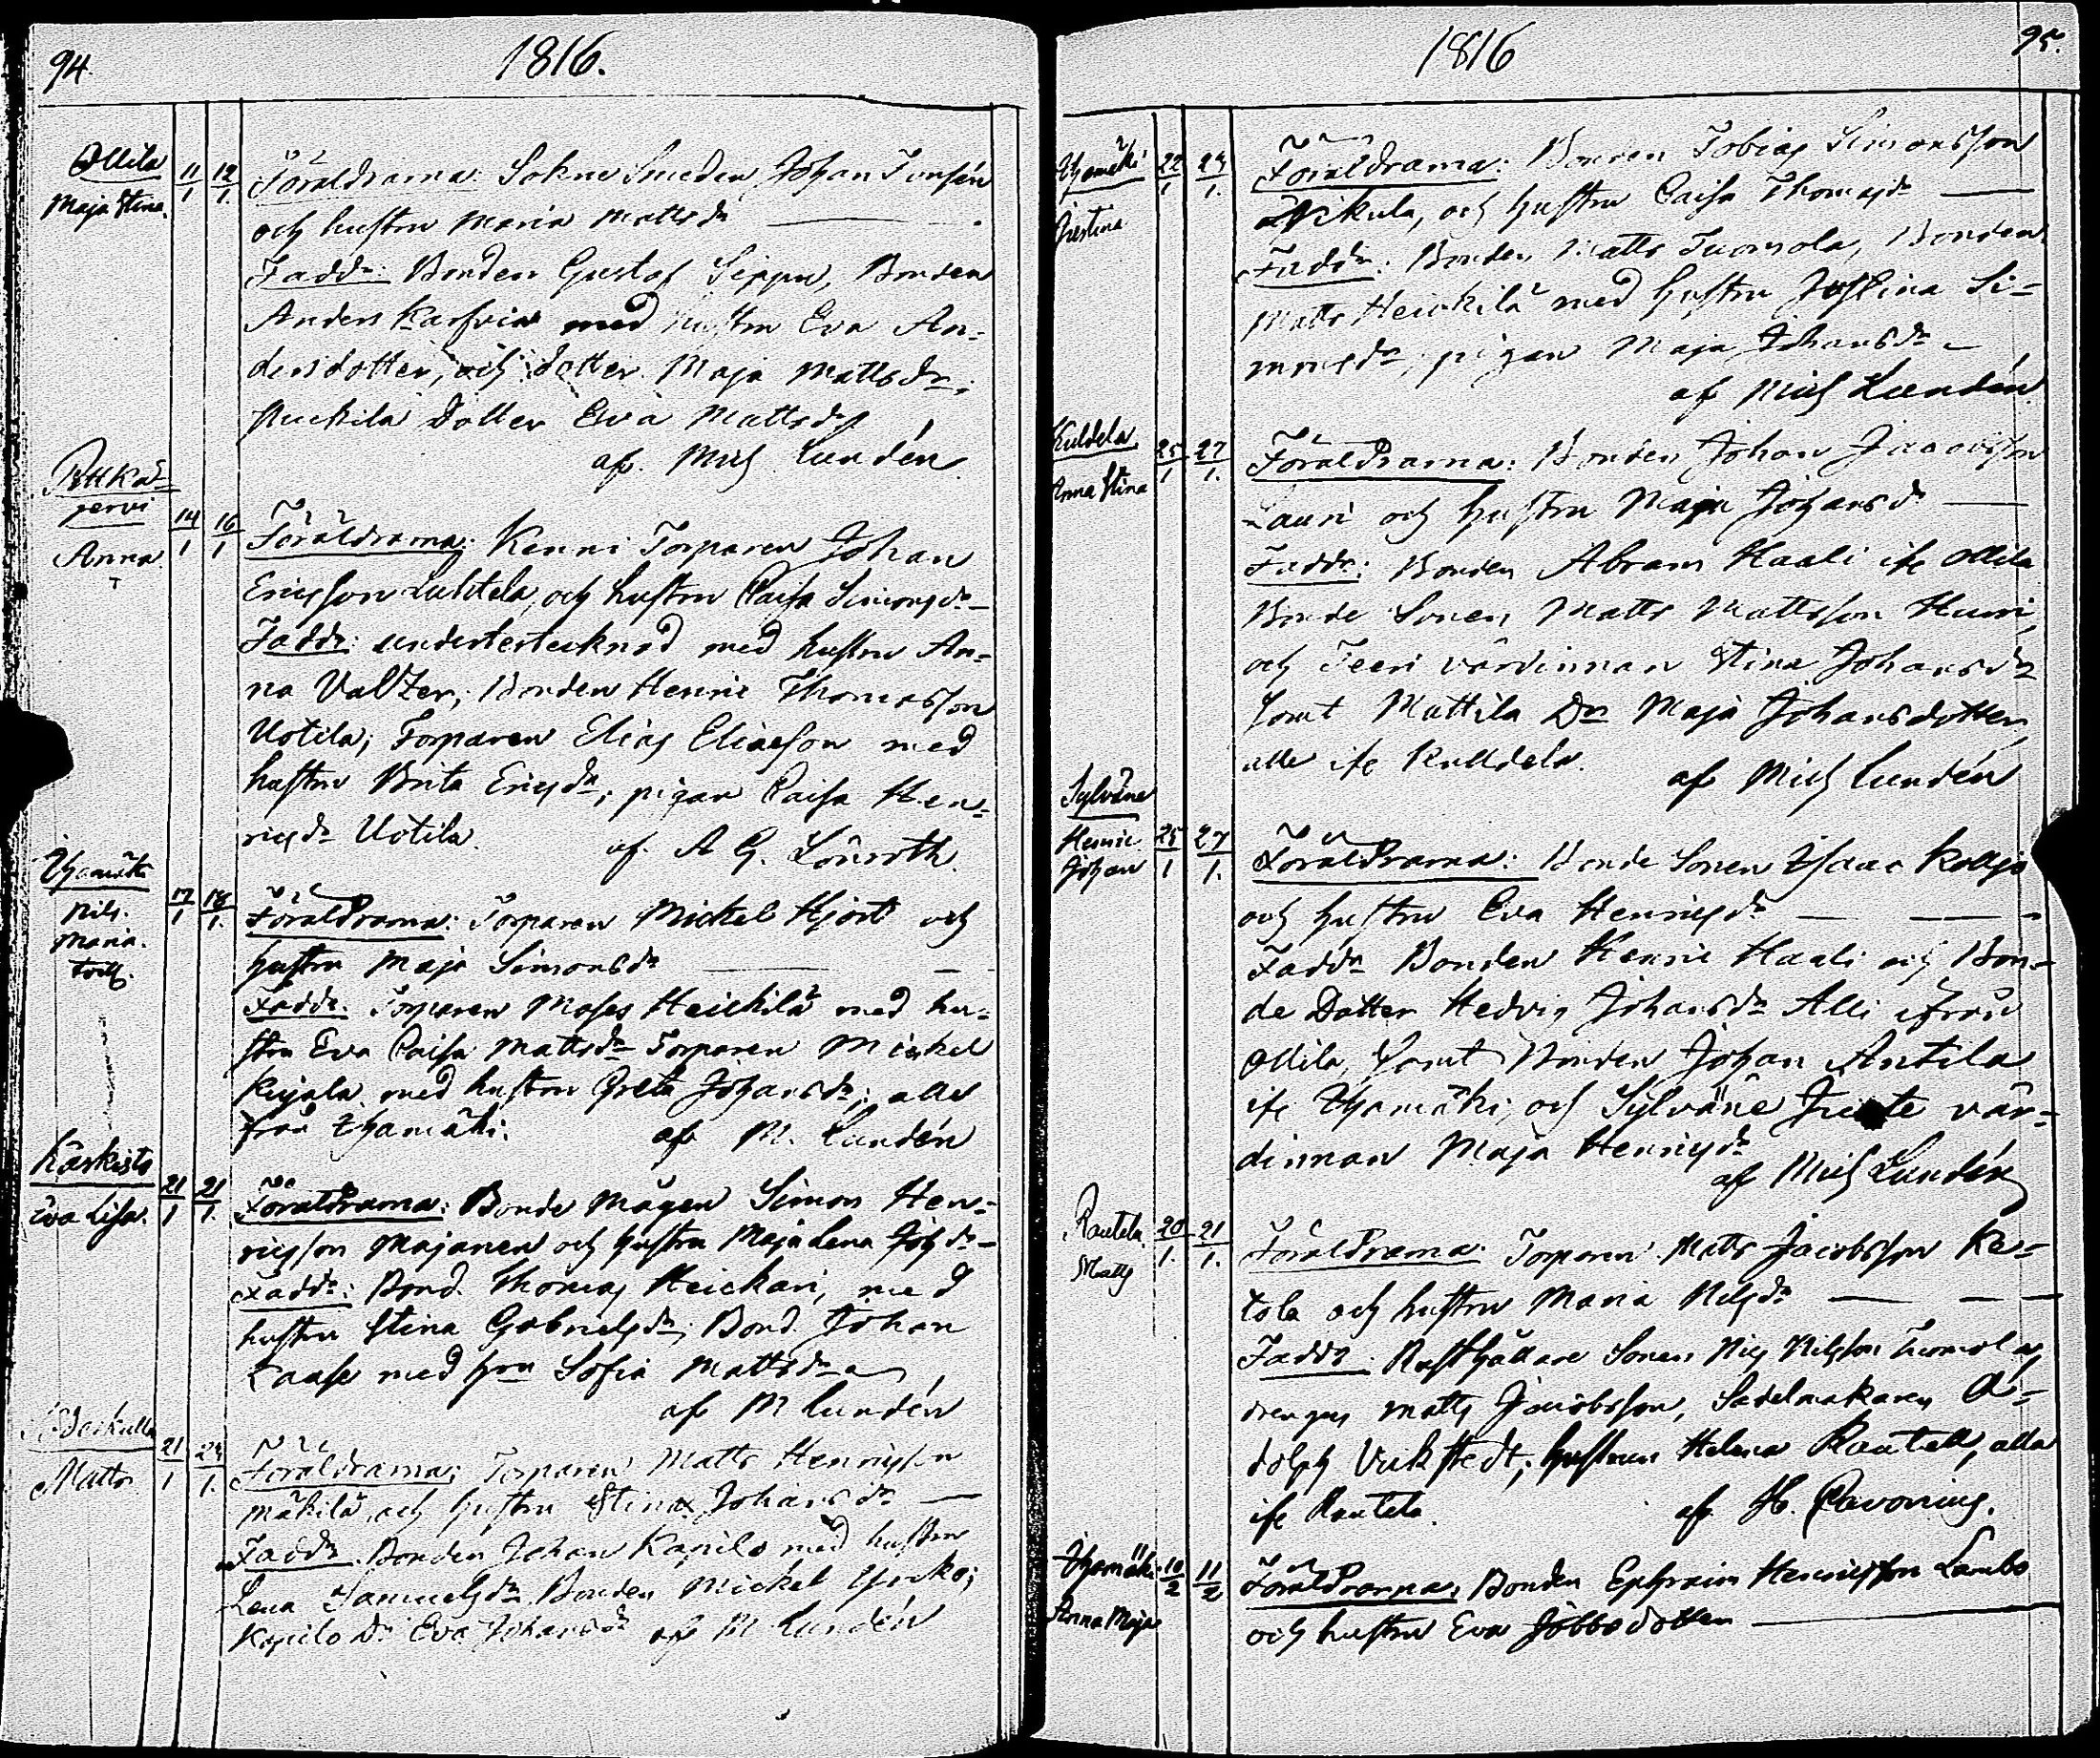 94.
1816.
Ollila
Maja Stina.
11/1 12/1
Föräldrarna: Sokne Smeden Johan
och hustru Maria Mattsdr
Faddr: Bonden Gustaf Seppu, Bonden
Anders med hustru Eva An-
dersdotter, och dotter Maja Mattsdr;
Dotter Eva Mattsdr
af. Mich Lundén
jervi
Anna
14/1 16/1
Föräldrarna: Kenni Torparen Johan
Ericsson Luhtela, och hustru Caisa Simonsdr
Faddr: undertecknad med hustru An-
na Valzer; Bonden Henric Thomasson
Uotila; Torparen Elias Eliasson med
hustru Brita Ericsdr; pigan Caisa Hen-
ricsdr Uotila.
af. A G. Lönroth.
Maria.
17/1 18/1.
Föräldrarna: Torparen Mickel Hjort och
hustru Maja Simonsdr
Faddr: Torparen Moses Heickilä med hu-
stru Eva Caisa Mattsdr Torparen Mickel
med hustru Greta Johansdr; alla
från
af M. Lundén
Karkisto
Eva Lisa.
21/1 21/1.
Föräldrarna: Bonde Mågen Simon Hen-
ricsson Majanen och hustru Maja Lena Johsdr
Faddr: Bond. Thomas Heickari, med
hustru Stina Gabrielsdr; Bond. Johan
Laase med hru Sofia Mattsdr
af M Lundén
Matts.
21/1 24/1.
Föräldrarna: Torparen Matts Henricsson
Mäkilä, och hustru Stina Johansdr
Faddr. Bonden Johan Kapilo med hustru
Lena Samuelsdr. Bonden Mickel
Kapilo Dr Eva Johansdr af M Lundén
1816
95.
Christina
22/1 24/1.
Föräldrarna: Bonden Tobias Simonsson
och hustru Caisa Thomasdr
Faddr: Bonden Matts Tuomola, Bonden
Matts Heickilä med hustru Justina Si-
monsdr; pigan Maja Johansdr
af Mich Lundén
Kuldela
Anna Stina
25/1 27/1.
Föräldrarna: Bonden Johan Jacobsson
Lauri och hustru Maja Johansdr
Faddr: Bonden Abram Haali ifr Ollila
Bonde Sonen Matts Mattsson
och Teeri värdinnan Stina Johansdr
samt Mattila Dr Maja Johansdotter
alla ifr Kulldela.
af Mich Lundén
Sylväne
Henric
Johan
25/1 27/1.
Föräldrarna: Bonde Sonen Isaac
och hustru Eva Henricsdr
Faddr Bonden Henric Haali och Bon-
de Dotter Hedvig Johansdr Alli ifrån
Ollila, samt Bonden Johan Antila
ifr och Sylväne vär-
dinnan Maja Henricsdr
af Mich Lundén
Rautela
Matts
20/1. 21/1.
Föräldrarna: Torparen Matts Jacobsson Ke-
tola och hustru Maria Nilsdr
Faddr: Rusthållare Sonen Nils Nilsson
drengen Matts Jacobsson, Sadelmakaren A-
dolph hustrun Helena Rautell, alla
ifr Rautela.
af H. Pavorinus.
Anna Maja
10/2 11/2
Föräldrarna; Bonden Ephraim Henricsson
och hustru Eva Jobbsdotter